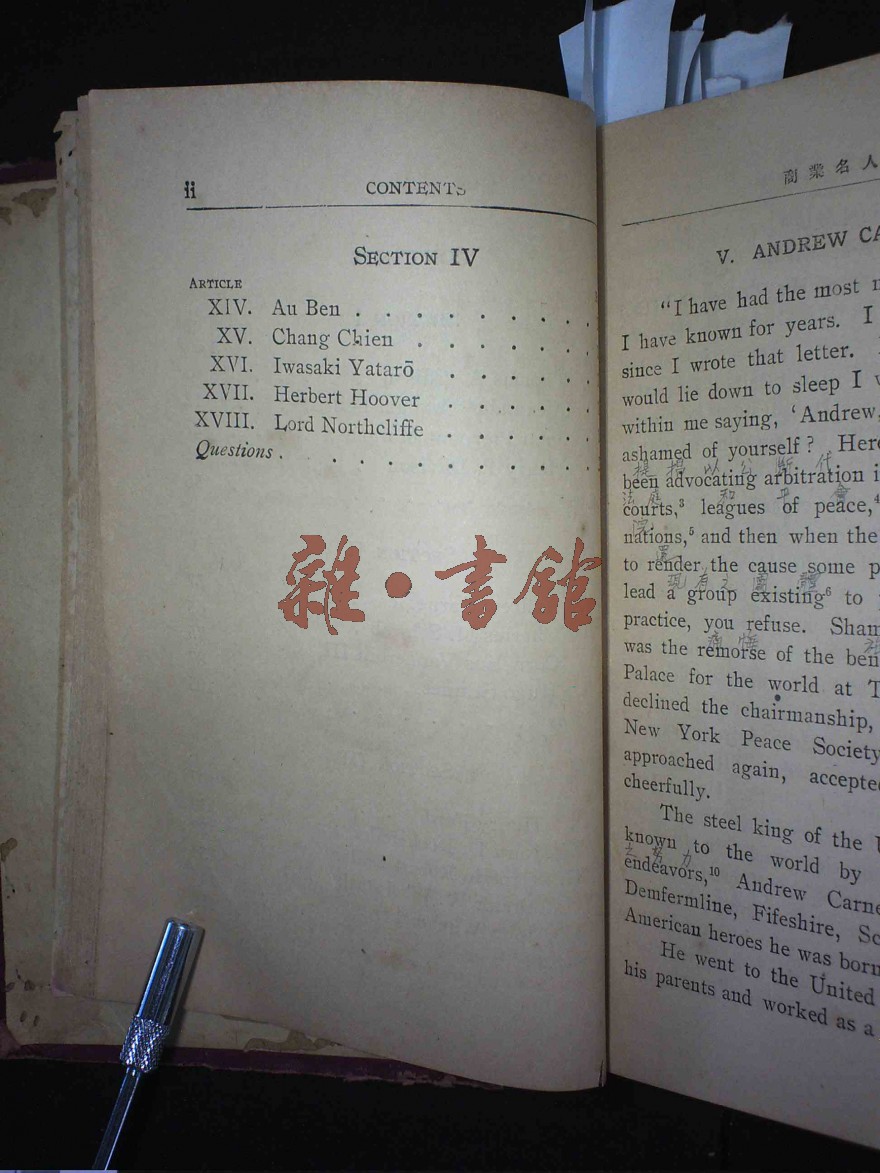 ii CONTENTS
SECTION IV
ARTICLE
XIV. Au Ben
XV. Chang Chien
XVI. Iwasaki Yatarō
XVII. Herbert Hoover
XVIII. Lord Northcliffe
Questions
雜·書館
商業名人
V. ANDREW CA
"I have had the most
I have known for years. I
since I wrote that letter.
would lie down to sleep I
within me saying, 'Andrew,
ashamed of yourself? Here
提揭以公斷代
been advocating arbitration i
法庭 和平會
courts,³ leagues of peace,⁴
nations,⁵ and then when the
to render the cause some p
現有之團體
lead a group existing⁶ to
practice, you refuse. Sham
痛悔
was the remorse of the ben
Palace for the world at T
declined the chairmanship,
New York Peace Society
approached again, accepte
cheerfully.
The steel king of the U
known to the world by
之努力
endeavors,¹⁰ Andrew Carne
Demfermline, Fifeshire, Sc
American heroes he was born
He went to the United
his parents and worked as a